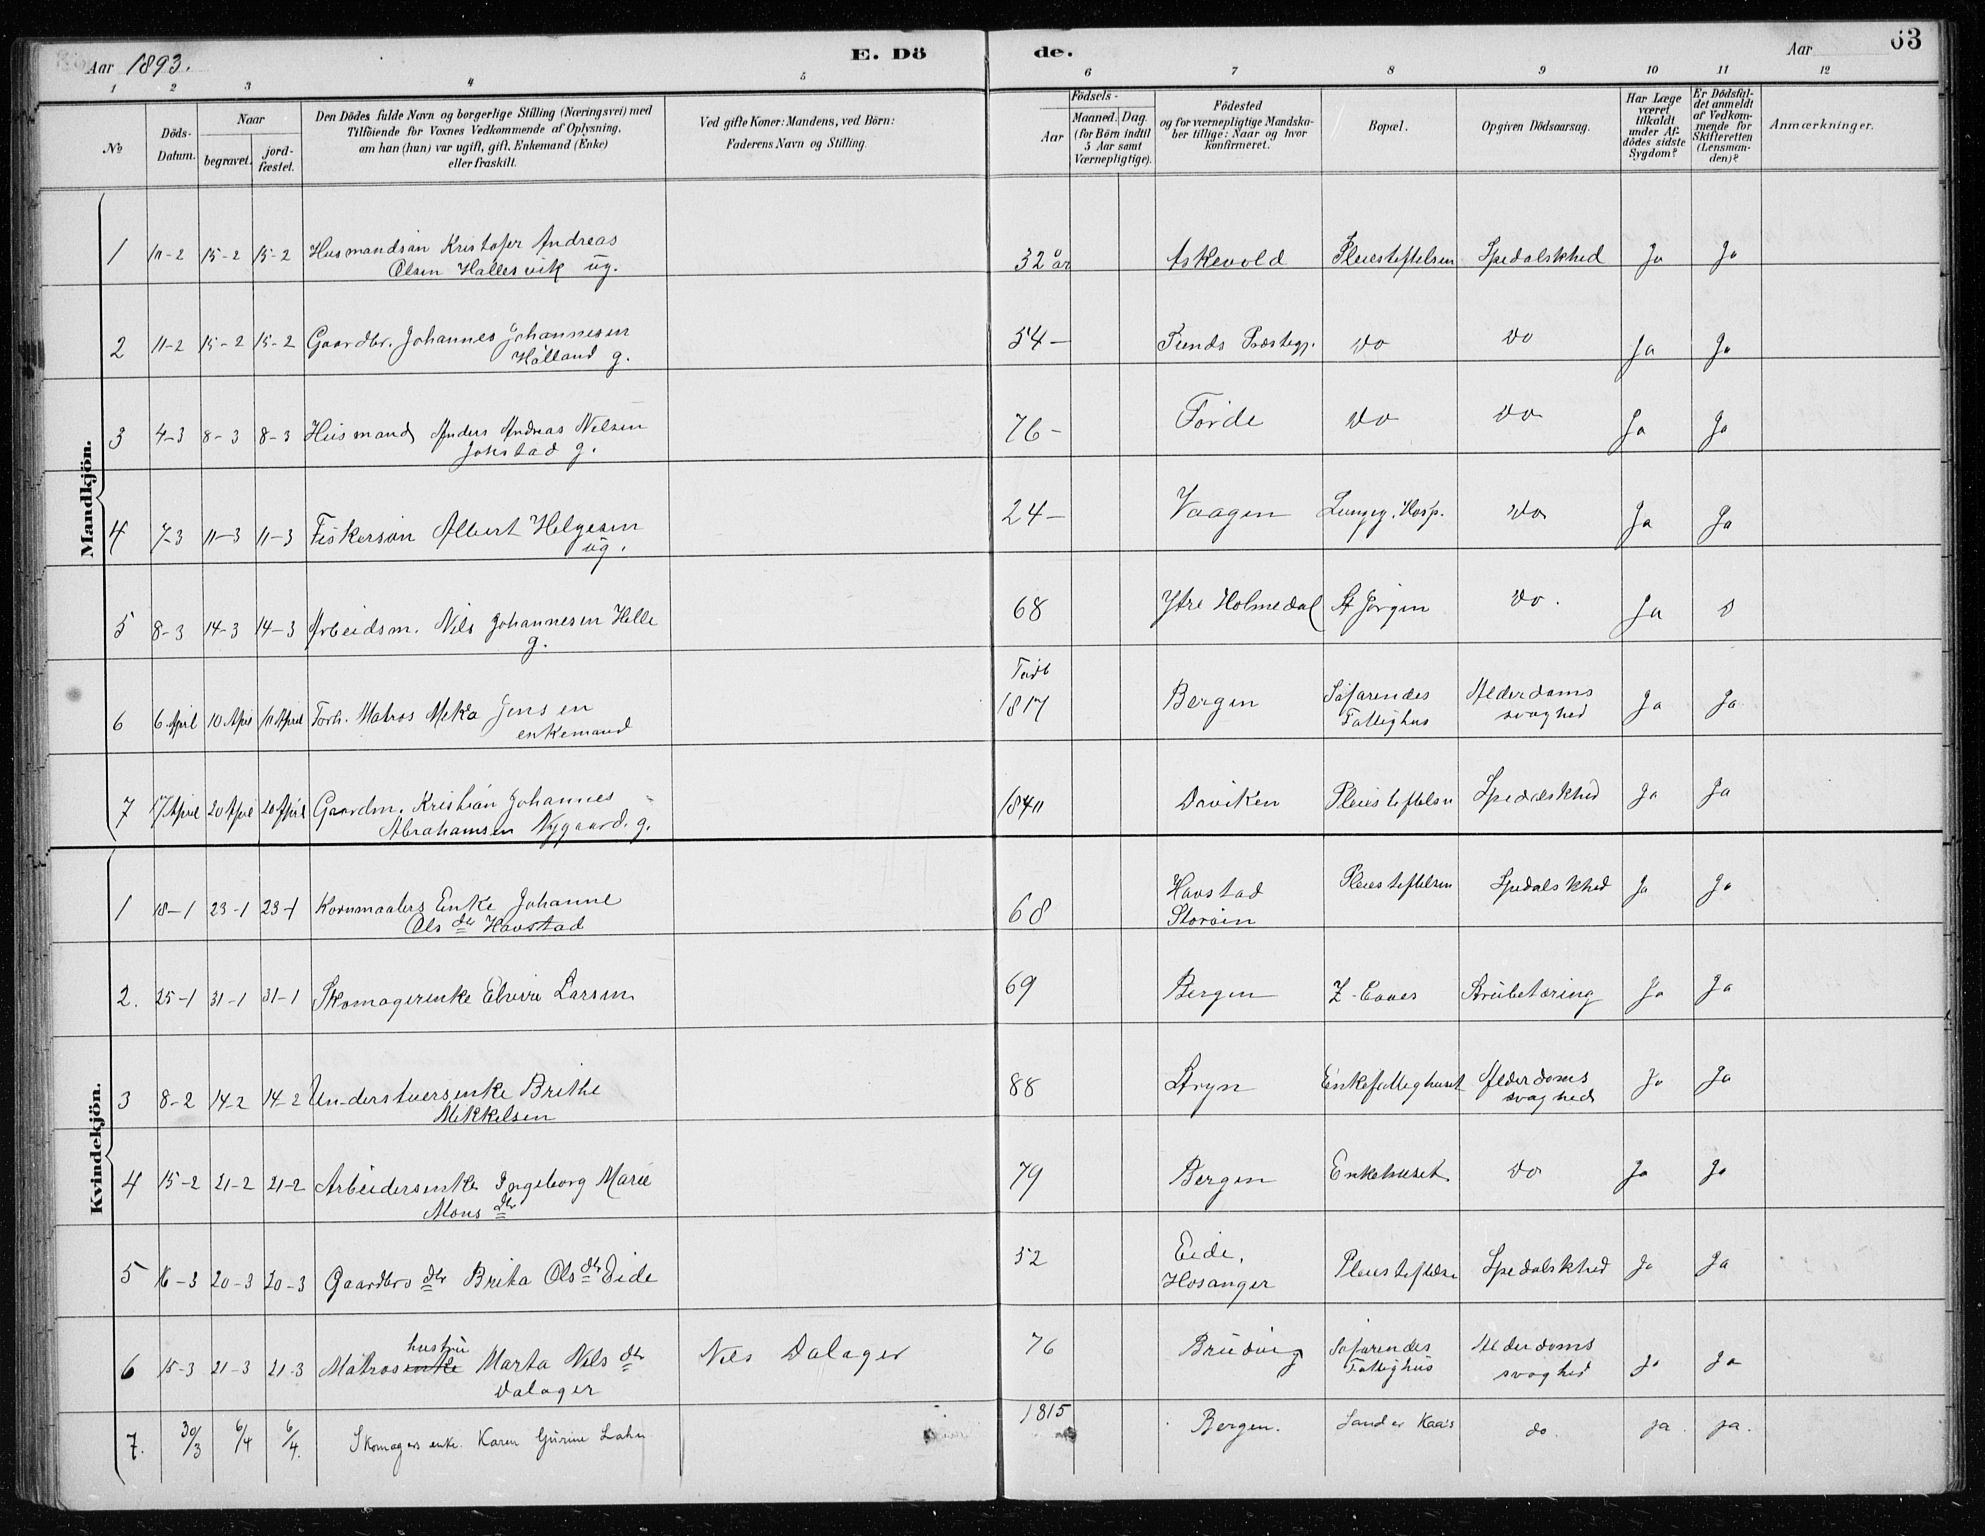 Aar 1893.
E. Dö
de.
Aar
63
1 2 3 4 5 6 7 8 9 10 11 12
№
Döds-
Datum.
Naar
begravet.
jord-
fæstet.
Den Dödes fulde Navn og borgerlige Stilling (Næringsvei) med
Tilföiende for Voxnes Vedkommende af Oplysning,
om han (hun) var ugift, gift, Enkemand (Enke)
eller fraskilt.
Ved gifte Koner: Mandens, ved Börn:
Faderens Navn og Stilling.
Födsels-
Aar
Maaned. Dag.
(for Börn indtil
5 Aar samt
Værnepligtige).
Födested
og for værnepligtige Mandska-
ber tillige: Naar og hvor
konfirmeret.
Bopæl.
Opgiven Dödsaarsag.
Har Læge
været
tilkaldt
under Af-
dödes sidste
Sygdom?
Er Dödsfal-
det anmeldt
af Vedkom-
mende for
Skifteretten
(Lensman-
den)?
Anmærkninger.
Mandkjön.
1 11-2 15-2 15-2 Husmandsøn Kristofer Andreas
Olsen Hallesvik ug. 32 år Askevold Pleiestiftelsen Spedalskhed Ja Ja
2 11-2 15-2 15-2 Gaardbr. Johannes Johannesen
Hålland g. 54 - Finds Præstegj. do do Ja Ja
3 4-3 8-3 8-3 Husmand Anders Andreas Nilsen
Jonstad g. 76 - Førde do do Ja Ja
4 7-3 11-3 11-3 Fiskersøn Albert Helgesen
ug. 24 - Vaagen Lungeg. Hosp. do Ja Ja
5 8-3 14-3 14-3 Arbeidsm. Nils Johannesen Helle
g. 68 Ytre Holmedal St Jørgen do. Ja
Født
6 6 April 10 April 10 April Forh. Matros Meka Jensen
enkemand 1817 Bergen Søfarendes
Fattighus Alderdoms
svaghed Ja Ja
7 17 April 20 April 20 April Gaardm. Kristian Johannes
Abrahamsen Nygaard. g. 1840 Daviken Pleiestiftelsen Spedalskhed Ja Ja
Kvindekjön.
1 18-1 23-1 23-1 Kornmaalers Enke Johanne
Ols dtr Havstad 68 Havstad
Storøen Pleiestiftelsen Spedalskhed Ja Ja
2. 25-1 31-1 31-1 Skomagerenke Elvire Larsen 69 Bergen Z-Kaaes Strubetæring Ja Ja
3 8-2 14-2 14-2 Understuersenke Brithe
Mikkelsen 88 Stryn Enkefattighuset Alderdoms
svaghed Ja Ja
4 15-2 21-2 21-2 Arbeidersenke Ingeborg Marie
Mons dtr 79 Bergen Enkehuset do Ja Ja
5 16-3 20-3 20-3 Gaardbrs dtr Brita Ols dtr Eide 52 Eide,
Hosanger Pleiestiftelse Spedalskhed Ja Ja
hustru
6 15-3 21-3 21-3 Matrosenke Marta Nils dtr
Dalager Nils Dalager 76 Brudvig Søfarendes
Fattighus Alderdoms
svaghed Ja Ja
7. 30/3 6/4 6/4. Skomagers enke. Karen Gurine Lahn 1815 Bergen. Sander Kaas do. ja. ja.